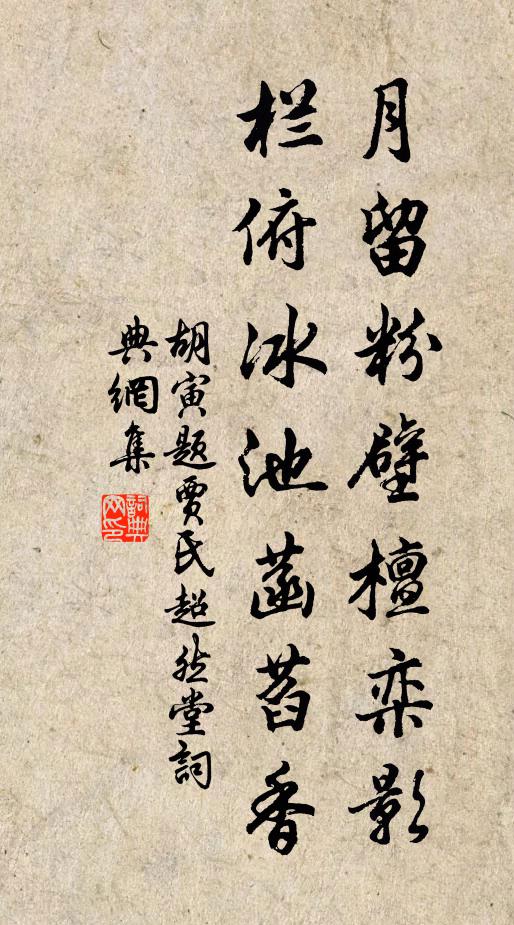 月留粉壁檀栾影
栏俯冰池菡萏香
胡寅题贾氏超然堂詞
典網集
詞典网印